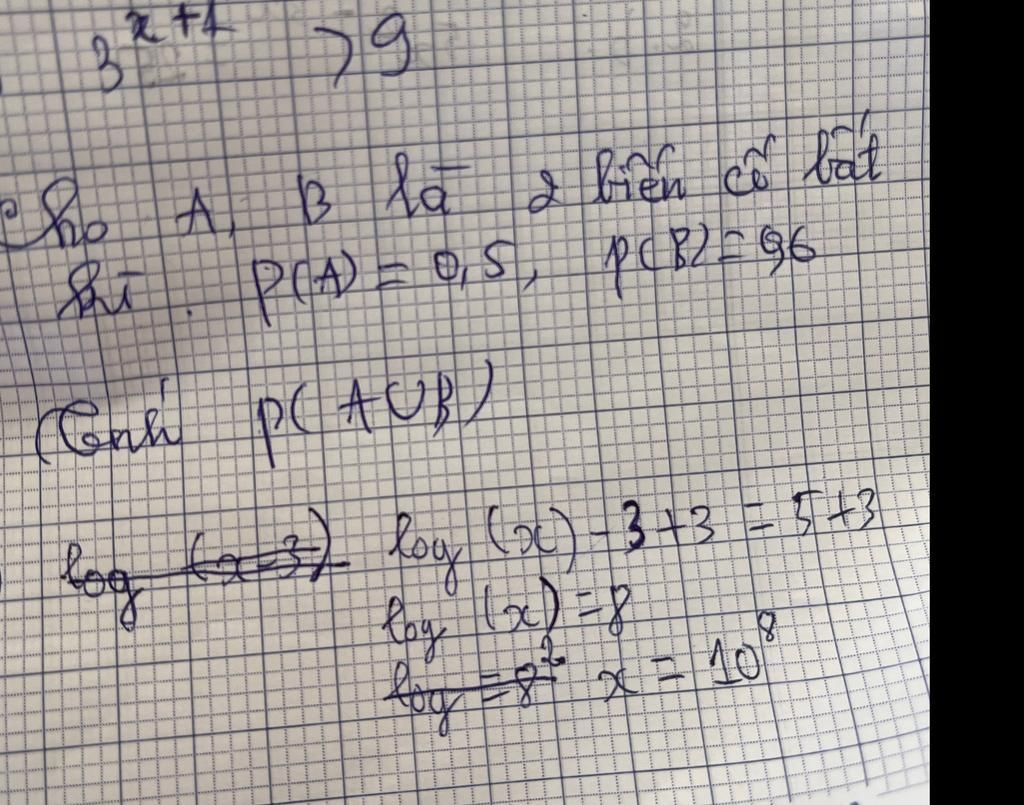 3^{x+1} > 9
Cho A, B là 2 biến cố bất
kì. P(A) = 0,5, P(B) = 0,6
Tính P(A∪B)
log (x-3) log (x) - 3 + 3 = 5 + 3
log (x) = 8
log = 8^2 x = 10^8